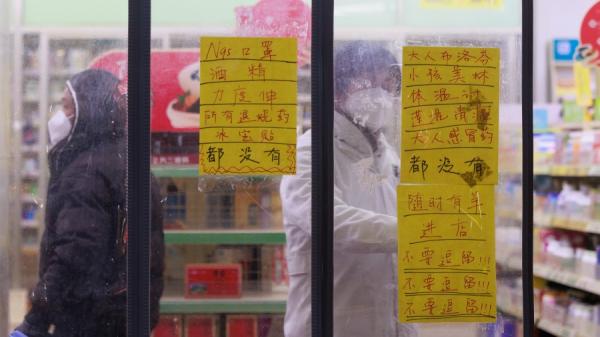 N95口罩
酒精
力度伸
所有退烧药
冰宝贴
都没有
大人布洛芬
小孩美林
体温计
清
大人感冒药
都没有
随时有羊
进店
不要逗留!!!
不要逗留!!!
不要逗留!!!